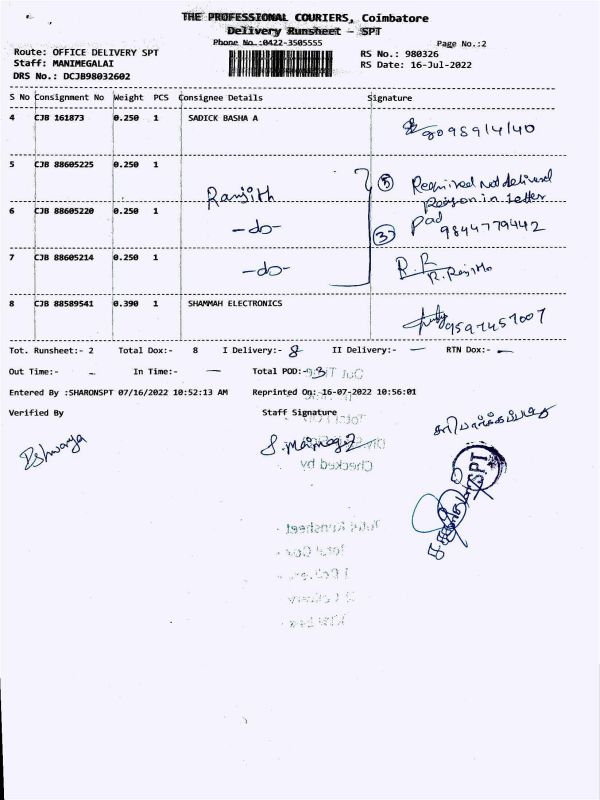 THE PROFESSIONAL COURIERS, Coimbatore
Delivery Runsheet - SPT
Phone No.:0422-3505555
Page No.:2
Route: OFFICE DELIVERY SPT
RS No.: 980326
Staff: MANIMEGALAI
RS Date: 16-Jul-2022
DRS No.: DCJB98032602
S No Consignment No Weight PCS Consignee Details Signature
4 CJB 161873 0.250 1 SADICK BASHA A
5 CJB 88605225 0.250 1 Ranjith
6 CJB 88605220 0.250 1 -do- 9844779442
7 CJB 88605214 0.250 1 -do- R.R
8 CJB 88589541 0.390 1 SHAMMAH ELECTRONICS 9597457007
Tot. Runsheet:- 2 Total Dox:- 8 I Delivery:- 8 II Delivery:- - RTN Dox:- -
Out Time:- - In Time:- - Total POD:- 3
Entered By :SHARONSPT 07/16/2022 10:52:13 AM Reprinted On: 16-07-2022 10:56:01
Verified By Staff Signature
SPT